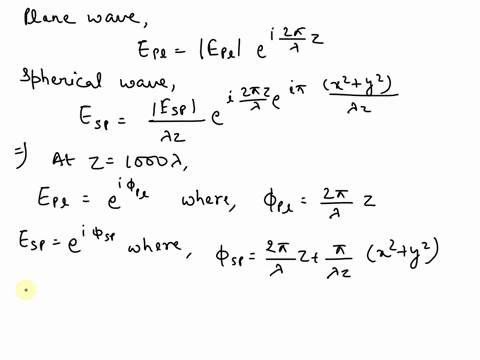 Plane wave,
E_Pl = |E_Pl| e^{i 2π/λ z}
Spherical wave,
E_sp = |E_sp|/λz e^{i 2πz/λ} e^{iπ (x²+y²)/λz}
⇒ At z = 1000λ,
E_Pl = e^{i ϕ_Pl} where, ϕ_Pl = 2π/λ z
E_sp = e^{i ϕ_sp} where, ϕ_sp = 2π/λ z + π/λz (x²+y²)